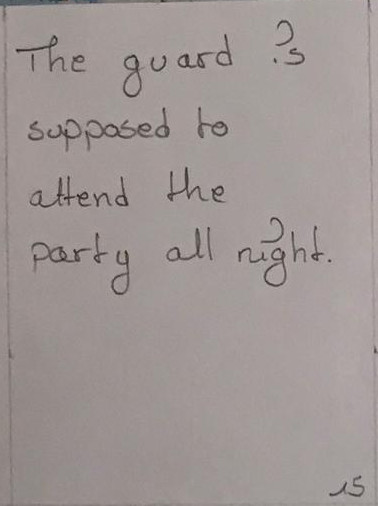 The guard is
supposed to
attend the
party all night.
15